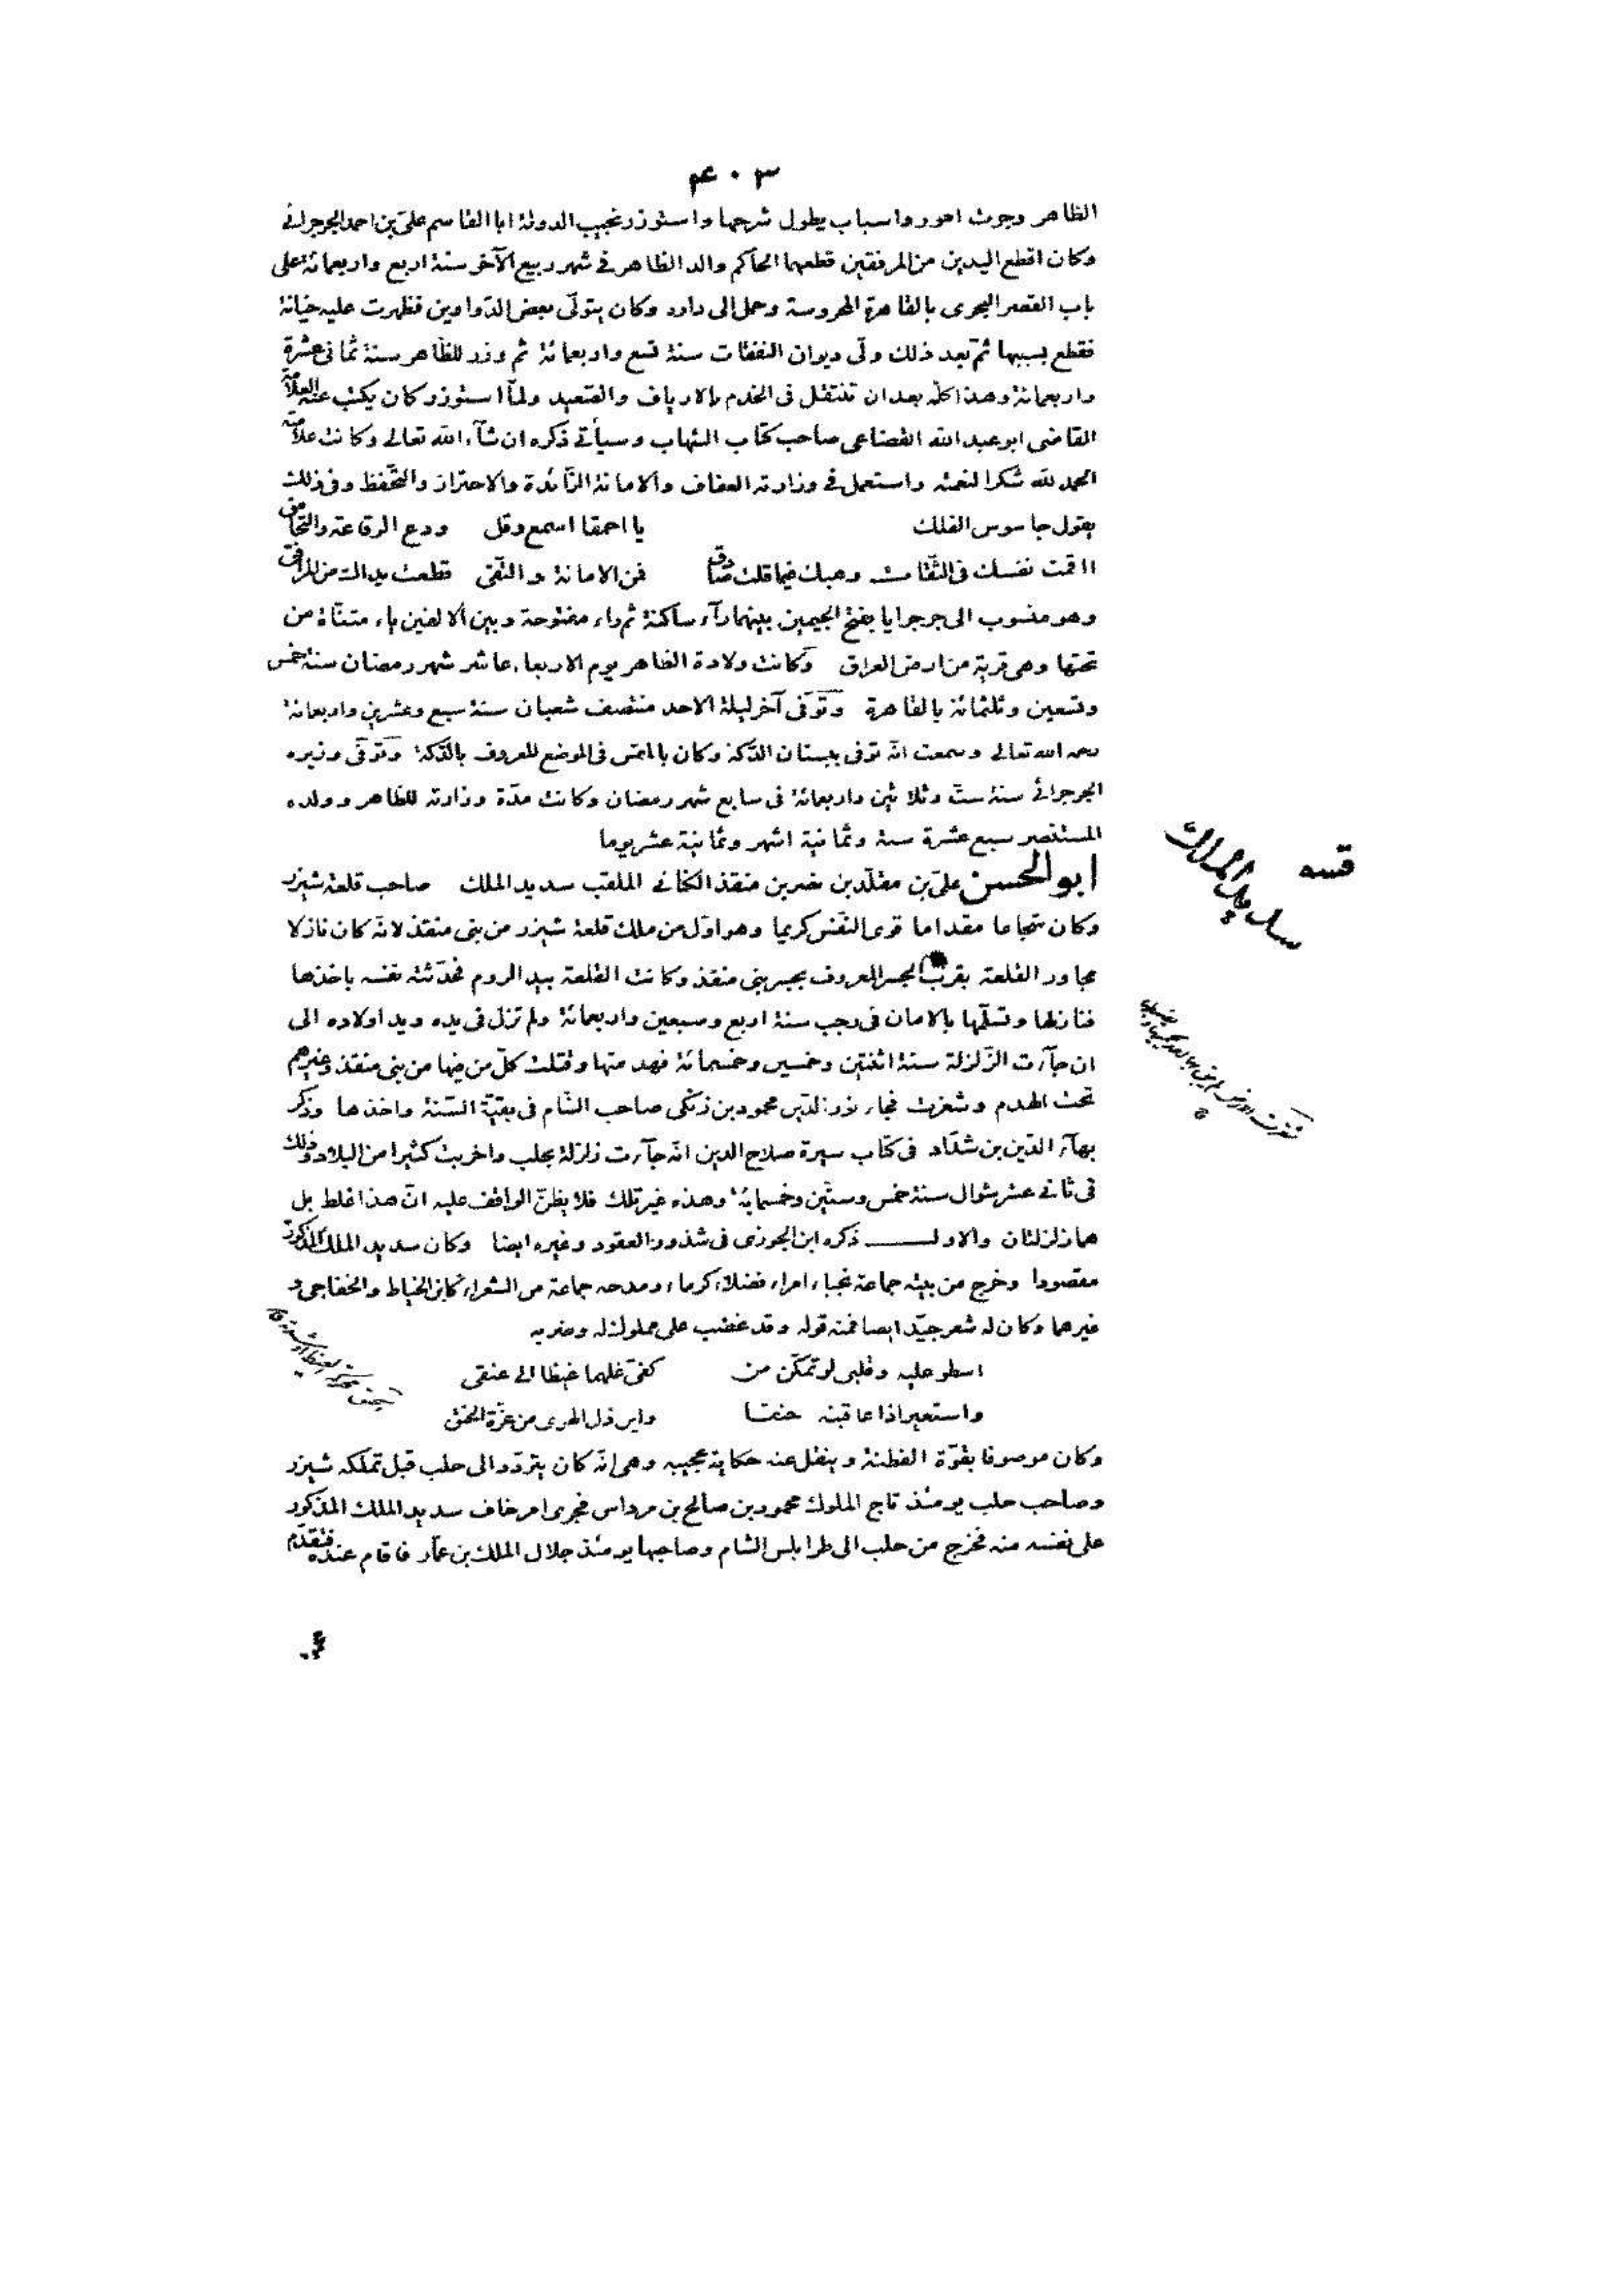 ۴۰۳
الظاهر وجرت امور واسباب يطول شرحها واستوزر نجيب الدولة ابا القاسم علىّ بن احمد الجرجرائى
وكان اقطع اليدين من المرفقين قطعهما الحاكم والد الظاهر فى شهر ربيع الآخر سنة اربع واربعمائة على
باب القصر البحرى بالقاهرة المحروسة وحمل الى داره وكان يتولّى بعض الدّواوين فظهرت عليه خيانة
فقطع بسببها ثمّ بعد ذلك ولّى ديوان النفقات سنة تسع واربعمائة ثم وزر للظاهر سنة ثمانى عشرة
واربعمائة وهذا كلّه بعد ان تنتقل فى الخدم بالارياف والصّعيد ولمّا استوزر كان يكتب عنه العلامة
القاضى ابو عبد الله القضاعى صاحب كتاب الشهاب وسيأتى ذكره ان شآء الله تعالى وكانت علامته
الحمد لله شكرا لنعمته واستعمل فى وزارته العفاف والامانة الزّائدة والاحتراز والتحّفظ وفى ذلك
يقول جاسوس الفلك يا احمقا اسمع وقل ودع الرقاعة والتحامق
ااقمت نفسك فى الثّقات وهبك فيما قلت صادق فمن الامانة والتّقى قطعت يداك من المرافق
وهو منسوب الى جرجرايا بفتح الجيمين بينهما رآء ساكنة ثم راء مفتوحة وبين الالفين ياء مثنّاة من
تحتها وهى قرية من ارض العراق وكانت ولادة الظاهر يوم الاربعاء عاشر شهر رمضان سنة خمس
وتسعين وثلثمائة بالقاهرة وتوفى آخر ليلة الاحد منتصف شعبان سنة سبع وعشرين واربعمائة
رحمه الله تعالى وسمعت انّه توفى ببستان الدّكة وكان بالمقس فى الموضع المعروف بالدّكة وتوفّى وزيره
الجرجرائى سنة ستّ وثلاثين واربعمائة فى سابع شهر رمضان وكانت مدّة وزارته للظاهر وولده
المستنصر سبع عشرة سنة وثمانية اشهر وثمانية عشر يوما
ابو الحسن علىّ بن مقلّد بن نصر بن منقذ الكنانى الملقب سديد الملك صاحب قلعة شيزر
وكان شجاعا مقداما قوى النّفس كريما وهو اوّل من ملك قلعة شيزر من بنى منقذ لانّه كان نازلا
مجاور القلعة بقرب الجسر المعروف بجسر بنى منقذ وكانت القلعة بيد الروم فحدّثته نفسه باخذها
فنازلها وتسلّمها بالامان فى رجب سنة اربع وسبعين واربعمائة ولم تزل فى يده ويد اولاده الى
ان جآءت الزّلزلة سنة اثنتين وخمسين وخمسمائة فهدمتها وقتلت كلّ من فيها من بنى منقذ وغيرهم
تحت الهدم وشغرت فجاء نور الدّين محمود بن زنكى صاحب الشام فى بقيّة السّنة واخذها وذكر
بهآء الدّين بن شدّاد فى كتاب سيرة صلاح الدين انّه جآءت زلزلة بحلب واخربت كثيرا من البلاد وذلك
فى ثانى عشر شوال سنة خمس وستّين وخمسمايه وهذه غير تلك فلا يظنّ الواقف عليه انّ هذا غلط بل
هما زلزلتان والاول ذكره ابن الجوزى فى شذور العقود وغيره ايضا وكان سديد الملك المذكور
مقصودا وخرج من بيته جماعة نجباء امراء فضلاء كرماء ومدحه جماعة من الشعراء كابن الخياط والخفاجى و
غيرهما وكان له شعر جيّد ايضا فمنه قوله وقد غضب على مملوك له وضربه
اسطو عليه وقلبى لو تمكّن من كفىّ غلّهما غيظا الى عنقى
واستعير اذا عاقبته حنقا واين ذل الهوى من عزّة الحنق
وكان موصوفا بقوّة الفطنة وينقل عنه حكاية عجيبه وهى انّه كان يتردّد الى حلب قبل تملّكه شيزر
وصاحب حلب يومئذ تاج الملوك محمود بن صالح بن مرداس فجرى امر خاف سديد الملك المذكور
على نفسه منه فخرج من حلب الى طرابلس الشام وصاحبها يومئذ جلال الملك بن عمّار فاقام عنده فتقدّم
قسه
سديد الملك